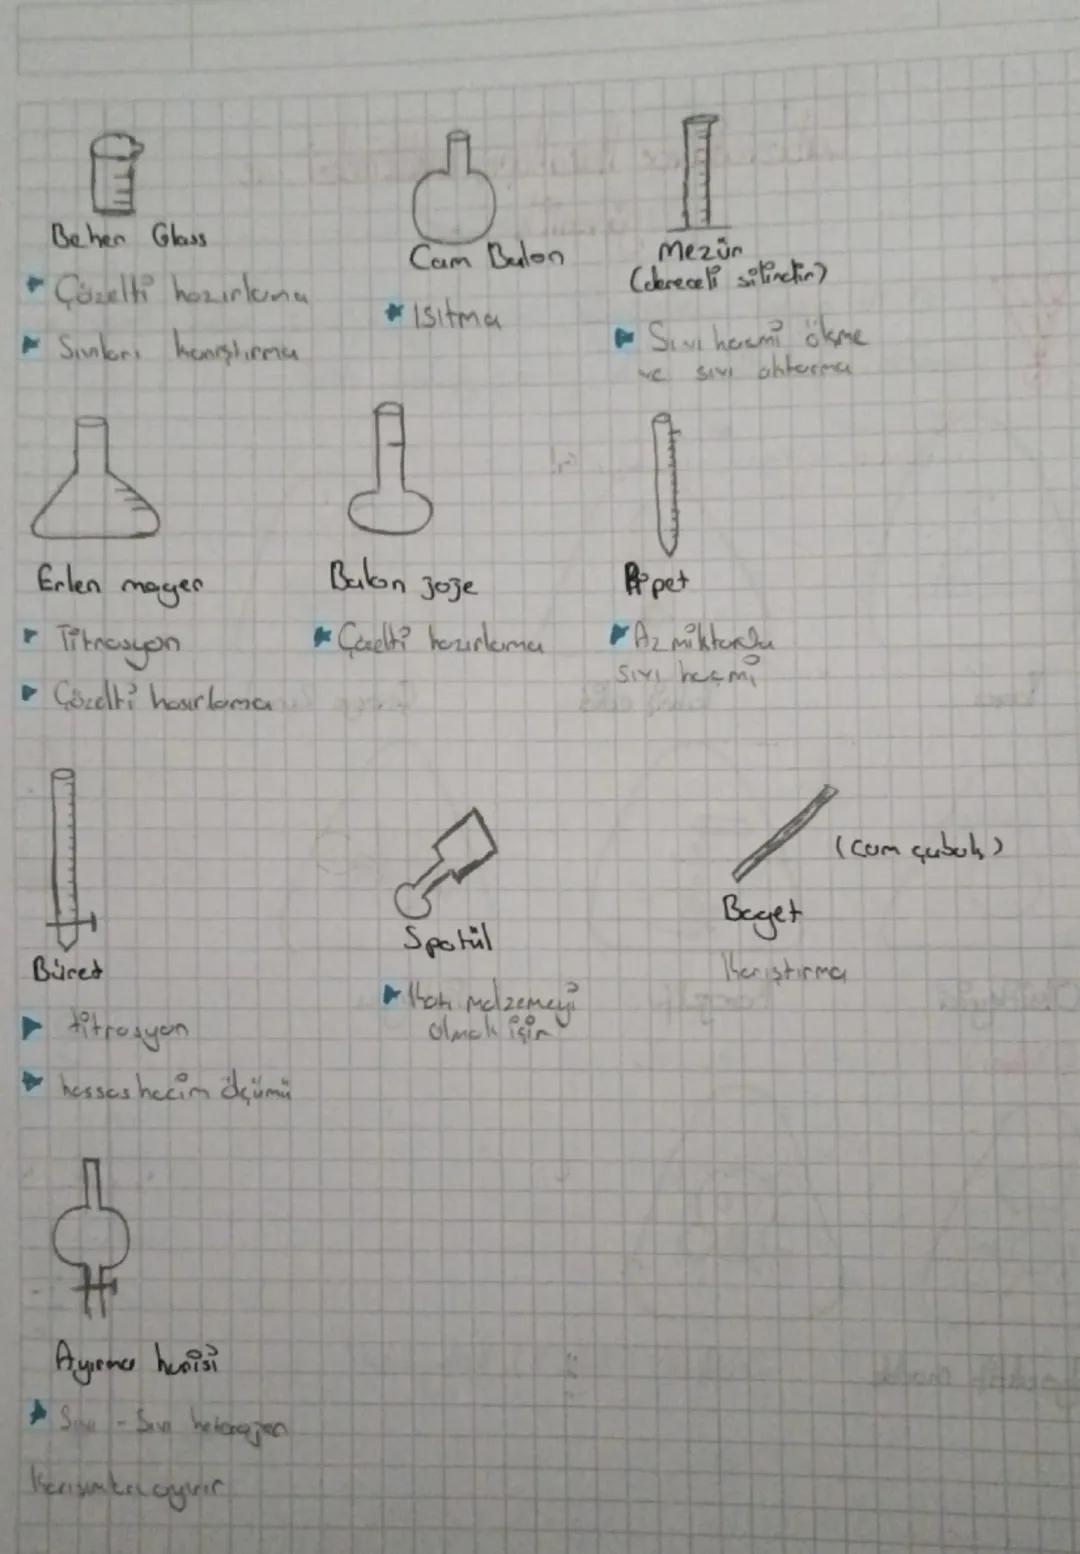 Beher Glass
Çözelti hazırlama
Sıvıları karıştırma
Cam Balon
Isıtma
Mezür
(dereceli silindir)
Sıvı hacmi ölçme
ve sıvı aktarma
Erlen mayer
Titrasyon
Çözelti hazırlama
Balon joje
Çözelti hazırlama
Pipet
Az miktarda
sıvı hacmi
Büret
titrasyon
hassas hacim ölçümü
Spatül
Katı malzemeyi
almak için
(cam çubuk)
Baget
Karıştırma
Ayırma hunisi
Sıvı - Sıvı heterojen
Karışımları ayırır